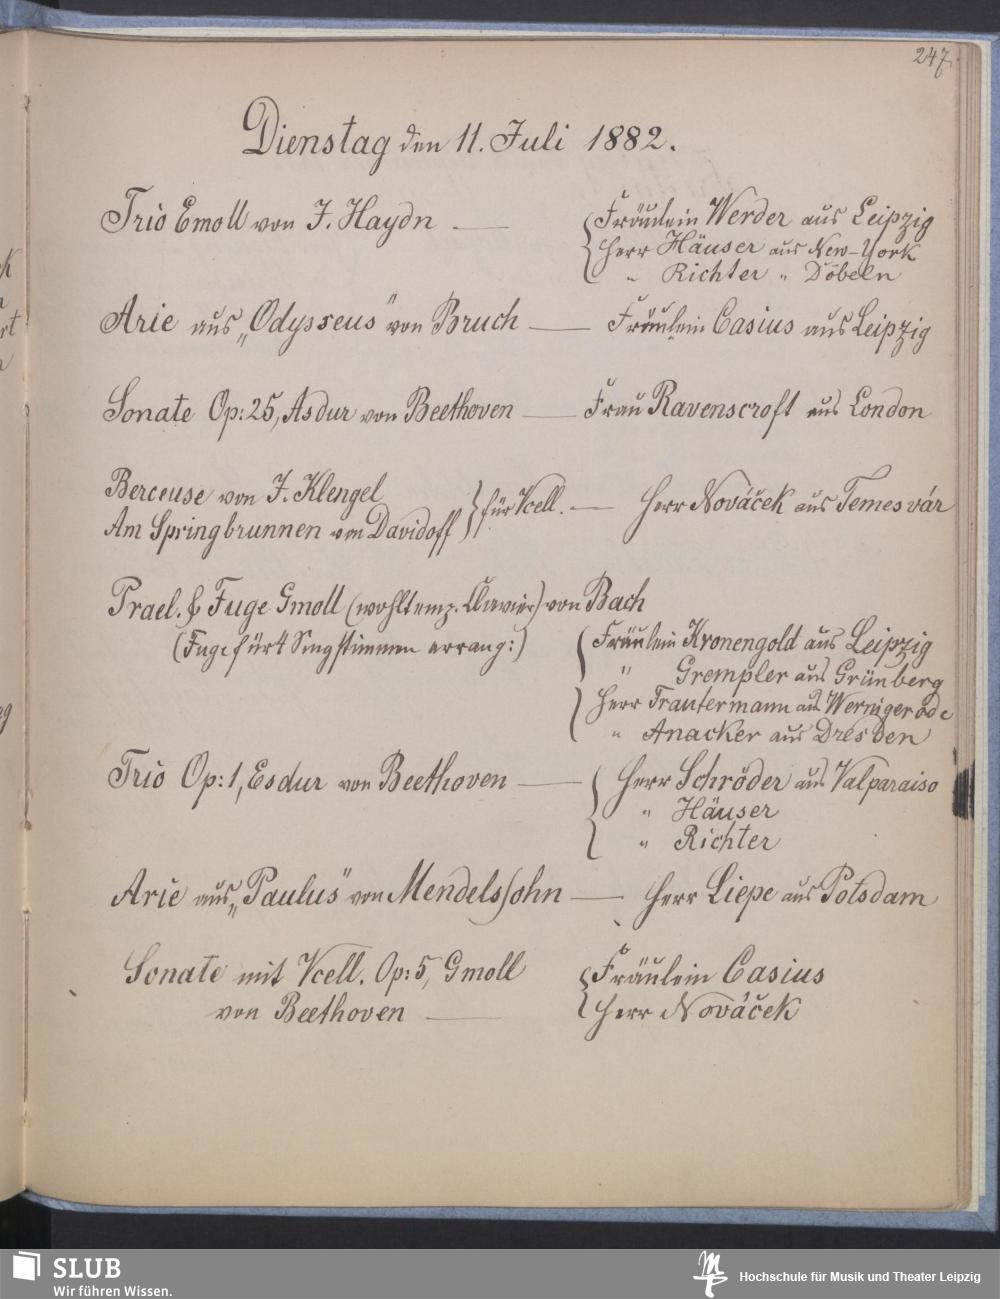 247.
Dienstag den 11. Juli 1882.
Trio Emoll von J. Haydn — Fräulein Werder aus Leipzig
Herr Häuser aus New-York
" Richter " Döbeln
Arie aus „Odysseus" von Bruch — Fräulein Casius aus Leipzig
Sonate Op: 25, Asdur von Beethoven — Frau Ravenscroft aus London
Berceuse von J. Klengel
Am Springbrunnen von Davidoff } für Vcell. — Herr Nováček aus Temesvár
Prael. & Fuge Gmoll (wohltemp. Clavier) von Bach
(Fuge für 4 Singstimmen arrang:) Fräulein Kronengold aus Leipzig
" Grempler aus Grünberg
Herr Trautermann aus Wernigerode
" Anacker aus Dresden
Trio Op: 1, Esdur von Beethoven — Herr Schröder aus Valparaiso
" Häuser
" Richter
Arie aus „Paulus" von Mendelssohn — Herr Liepe aus Potsdam
Sonate mit Vcell. Op: 5, Gmoll Fräulein Casius
von Beethoven — Herr Nováček
SLUB
Wir führen Wissen.
Hochschule für Musik und Theater Leipzig